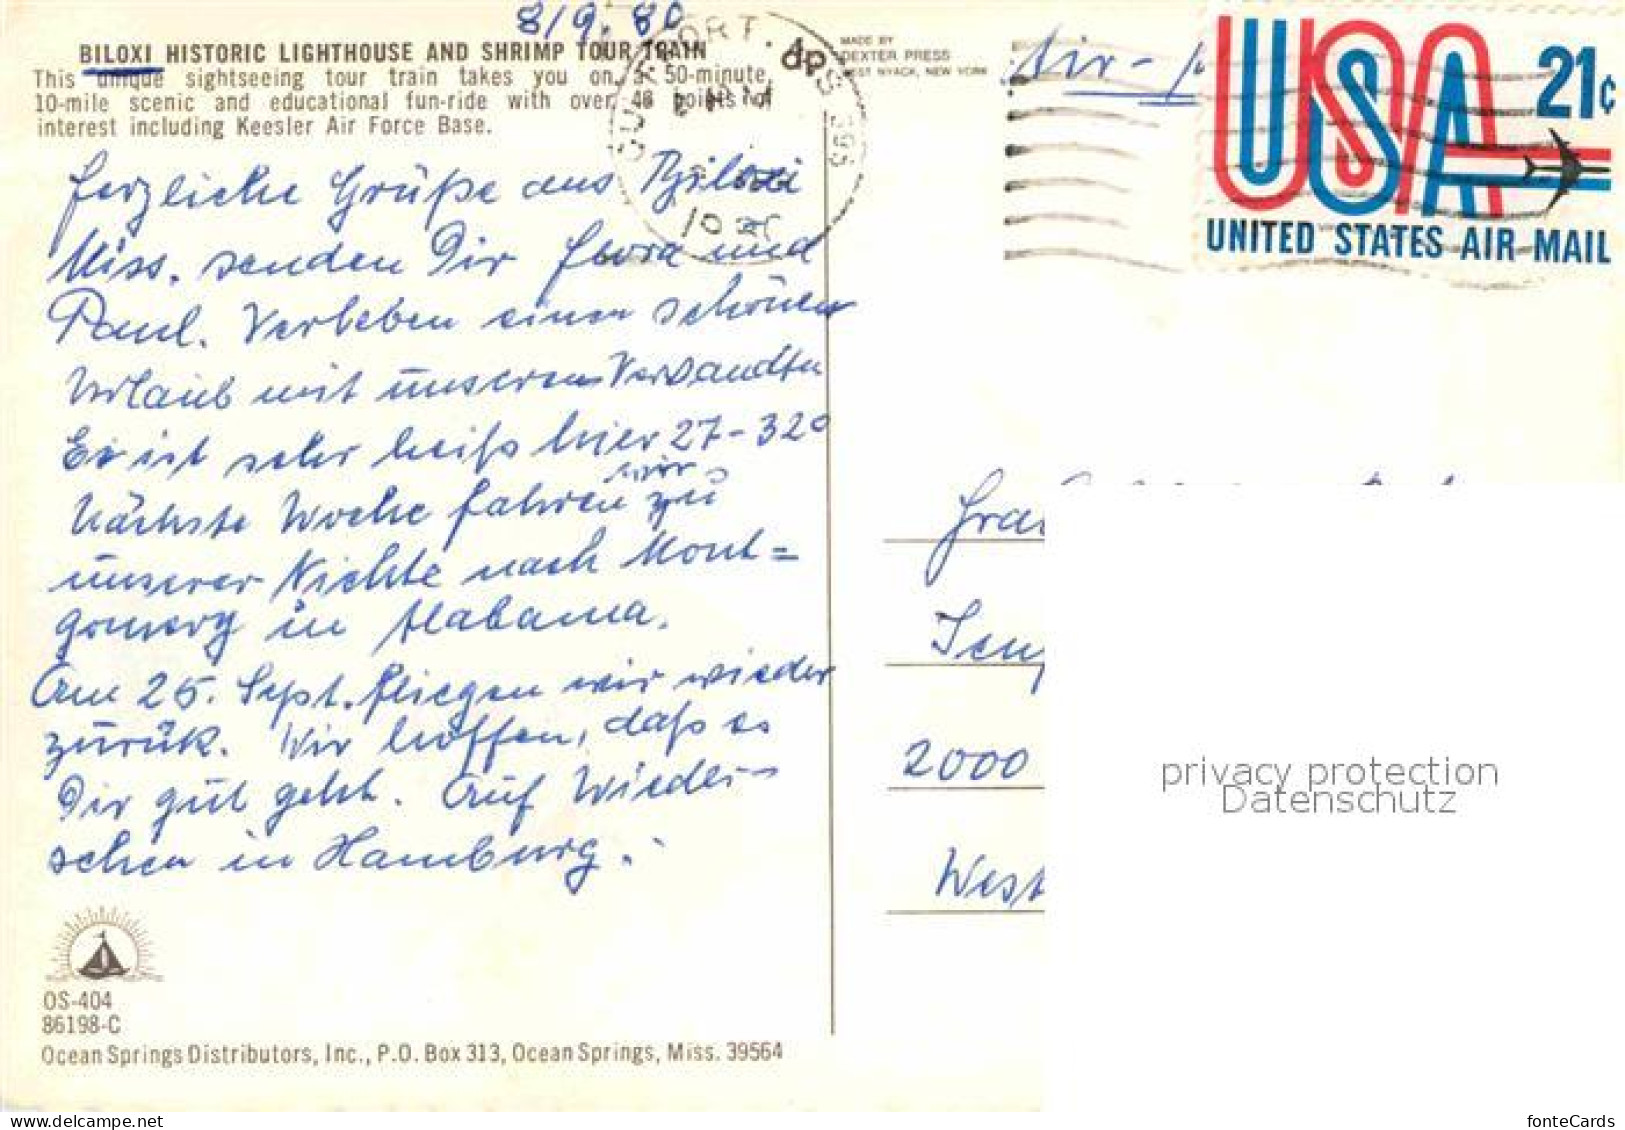 8/9. 80
BILOXI HISTORIC LIGHTHOUSE AND SHRIMP TOUR TRAIN
This unique sightseeing tour train takes you on a 50-minute,
10-mile scenic and educational fun-ride with over 48 points of
interest including Keesler Air Force Base.
MADE BY
DEXTER PRESS
WEST NYACK, NEW YORK
Air-
USA
21c
UNITED STATES AIR MAIL
herzliche Grüße aus Biloxi
Miss. senden Dir Flora und
Paul. Verleben einen schönen
Urlaub mit unseren Verwandten
Es ist sehr heiß hier 27-32°
Nächste Woche fahren wir zu
unserer Nichte nach Mont=
gomery in Alabama.
Am 25. Sept. fliegen wir wieder
zurük. Wir hoffen, daß es
Dir gut geht. Auf Wieder-
sehen in Hamburg.
2000
West
privacy protection
Datenschutz
OS-404
86198-C
Ocean Springs Distributors, Inc., P.O. Box 313, Ocean Springs, Miss. 39564
delcampe.net
fonteCards